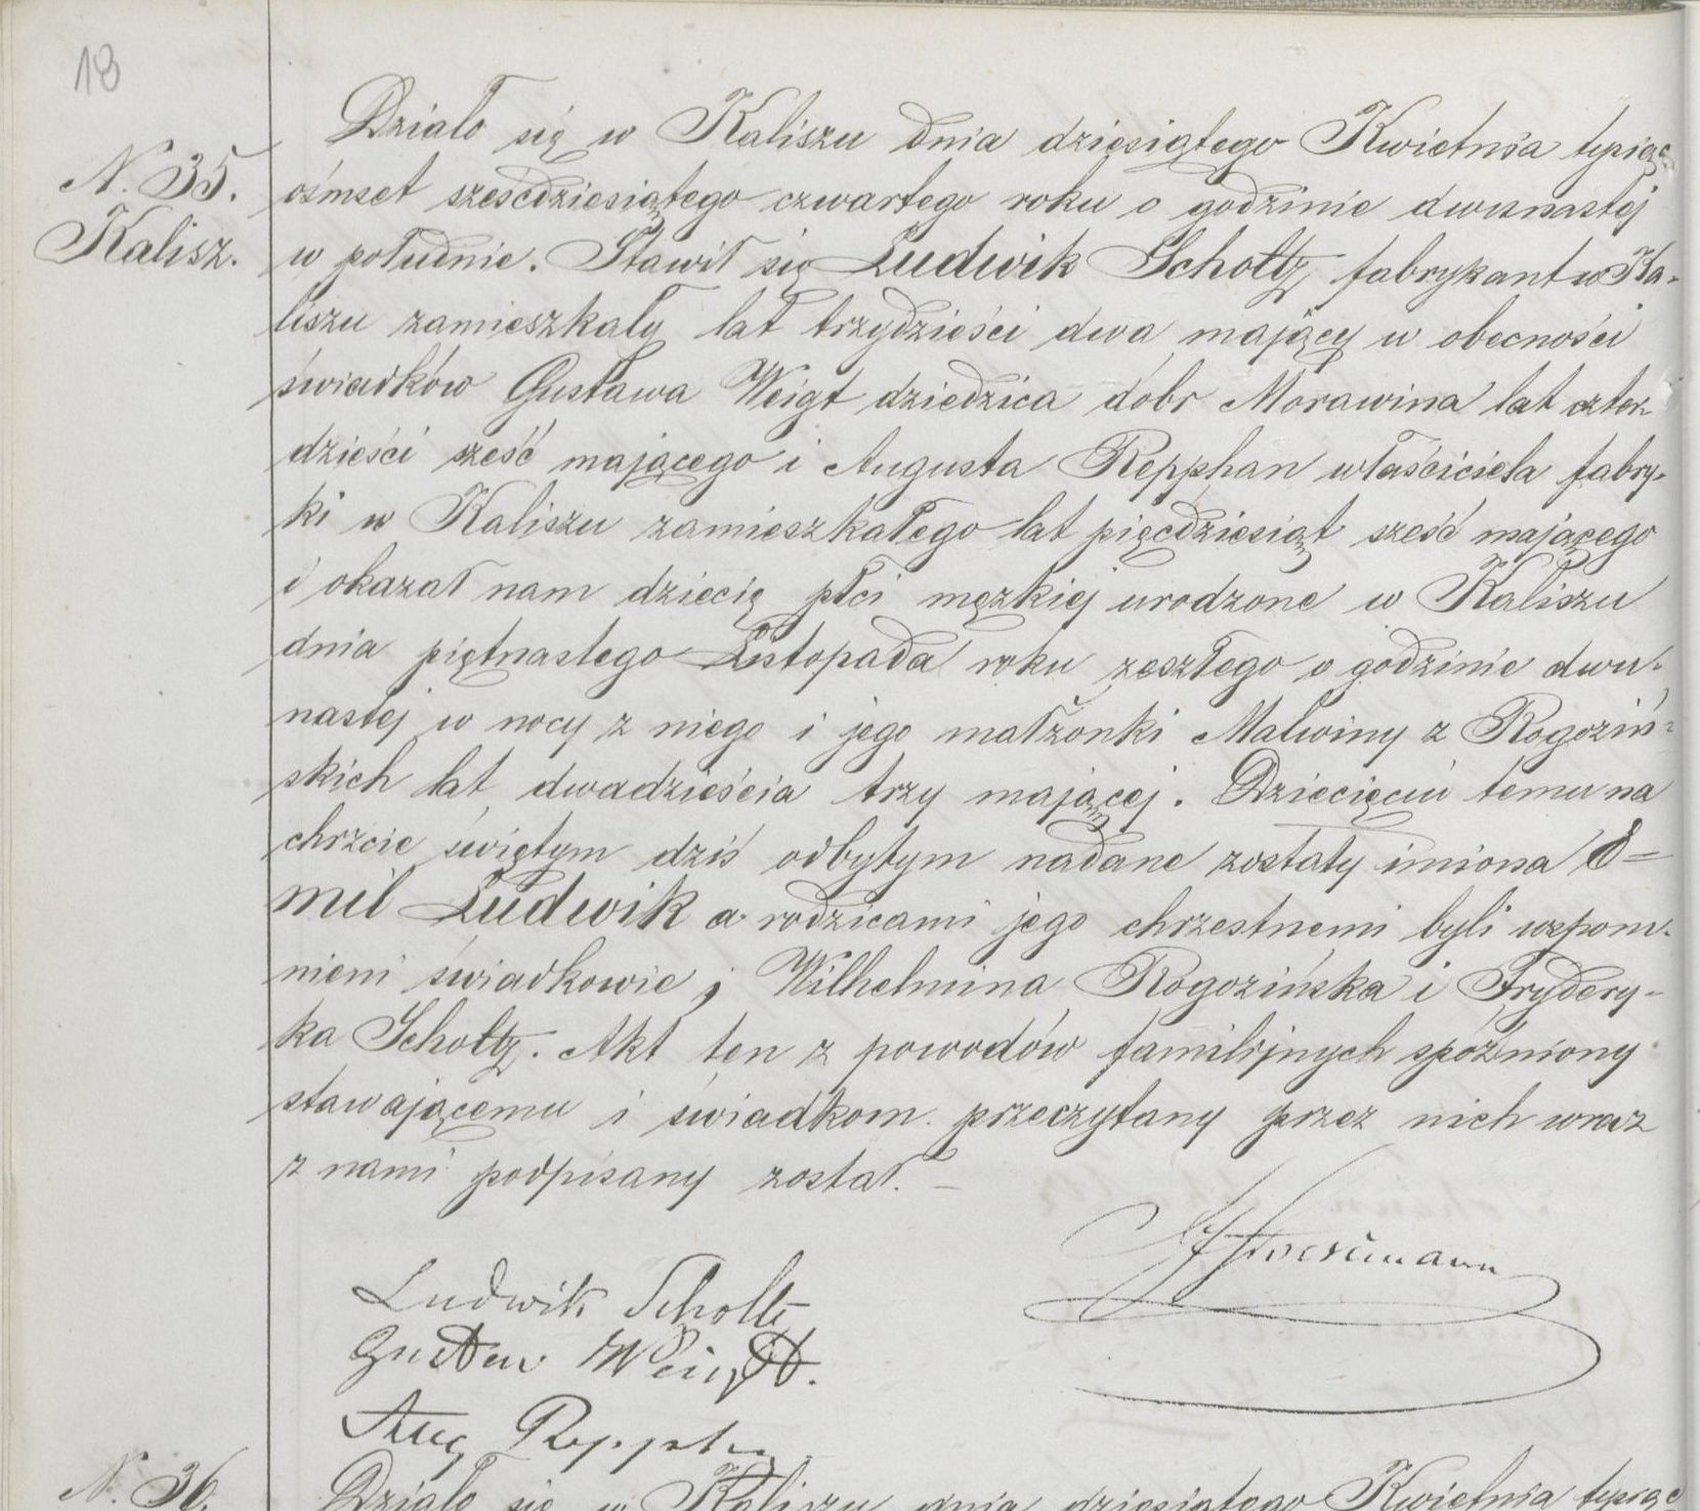 18
N. 35.
Kalisz.
Działo się w Kaliszu dnia dziesiątego Kwietnia tysiąc
ośmset sześćdziesiątego czwartego roku o godzinie dwunastej
w południe. Stawił się Ludwik Scholtz fabrykant w Ka-
liszu zamieszkały lat trzydzieści dwa mający w obecności
świadków Gustawa Weigt dziedzica dóbr Morawina lat czter-
dzieści sześć mającego i Augusta Repphan właściciela fabry-
ki w Kaliszu zamieszkałego lat pięćdziesiąt sześć mającego
i okazał nam dziecię płci męzkiej urodzone w Kaliszu
dnia piętnastego Listopada roku zeszłego o godzinie dwu-
nastej w nocy z niego i jego małżonki Malwiny z Rogoziń-
skich lat dwadzieścia trzy mającej. Dziecięciu temu na
chrzcie świętym dziś odbytym nadane zostały imiona E=
mil Ludwik a rodzicami jego chrzestnemi byli wspom-
nieni świadkowie, Wilhelmina Rogozińska i Frydery-
ka Scholtz. Akt ten z powodów familijnych spóźniony
stawającemu i świadkom przeczytany przez nich wraz
z nami podpisany został. –
Ludwik Scholtz
Gustaw Weigt.
Aug Repphan
N. 36.
Działo się w Kaliszu dnia dziesiątego Kwietnia tysiąc